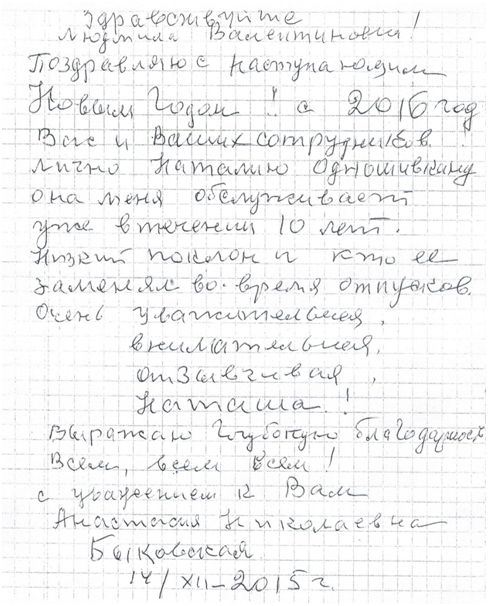 Здравствуйте
Людмила Валентиновна!
Поздравляю с наступающим
Новым Годом! с 2016 год
Вас и Ваших сотрудников.
лично Наталию
она меня обслуживает
уже в течении 10 лет.
Низкий поклон и кто ее
заменял во время отпусков.
Очень уважительная,
внимательная,
отзывчивая,
Наташа!
Выражаю глубокую благодарность
Всем, всем всем!
с уважением к Вам
Анастасия Николаевна
Быковская
14/XII-2015г.